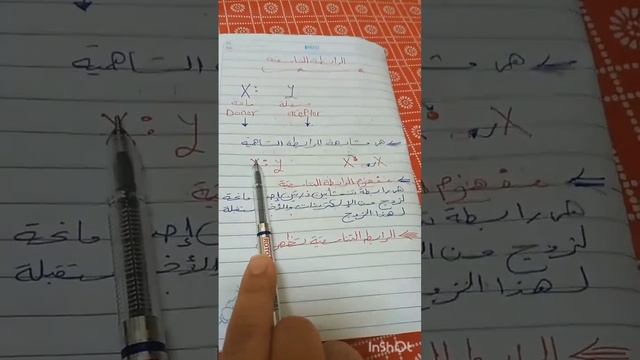 الرابطة التناسقية
X: Y
مانحة مستقبلة
Donor aceptor
هي مشابهة للرابطة التساهمية
X: Y X: .X
مفهوم الرابطة التناسقية
هي رابطة تنشأ بين ذرتين إحد مانحة
لزوج من الإلكترونات والأخ مستقبلة
لهذا الزوج
الرابطة التناسقية تظهر
InShOt